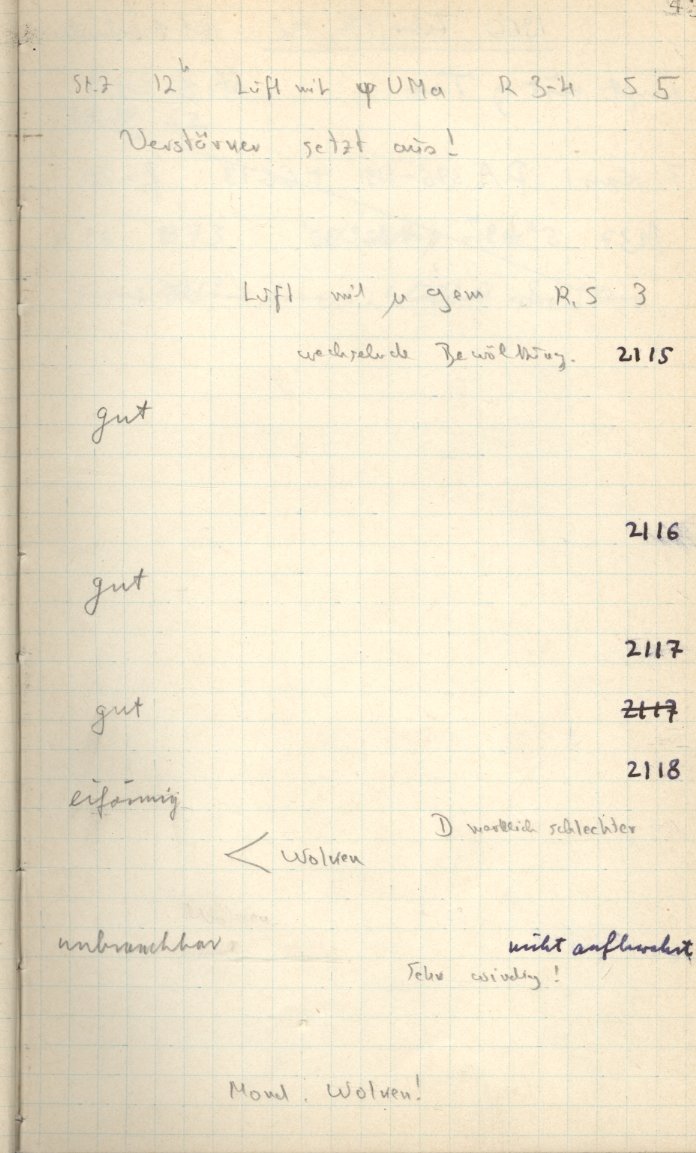 St.Z 12h Luft mit ψ UMa R 3-4 S 5
Verstärker setzt aus!
Luft mit μ gem R, S 3
wechselnde Bewölkung. 2115
gut
2116
gut
2117
gut 2117
2118
eiförmig
D merklich schlechter
< Wolken
unbrauchbar nicht aufbewahrt
Sehr windig!
Mond. Wolken!